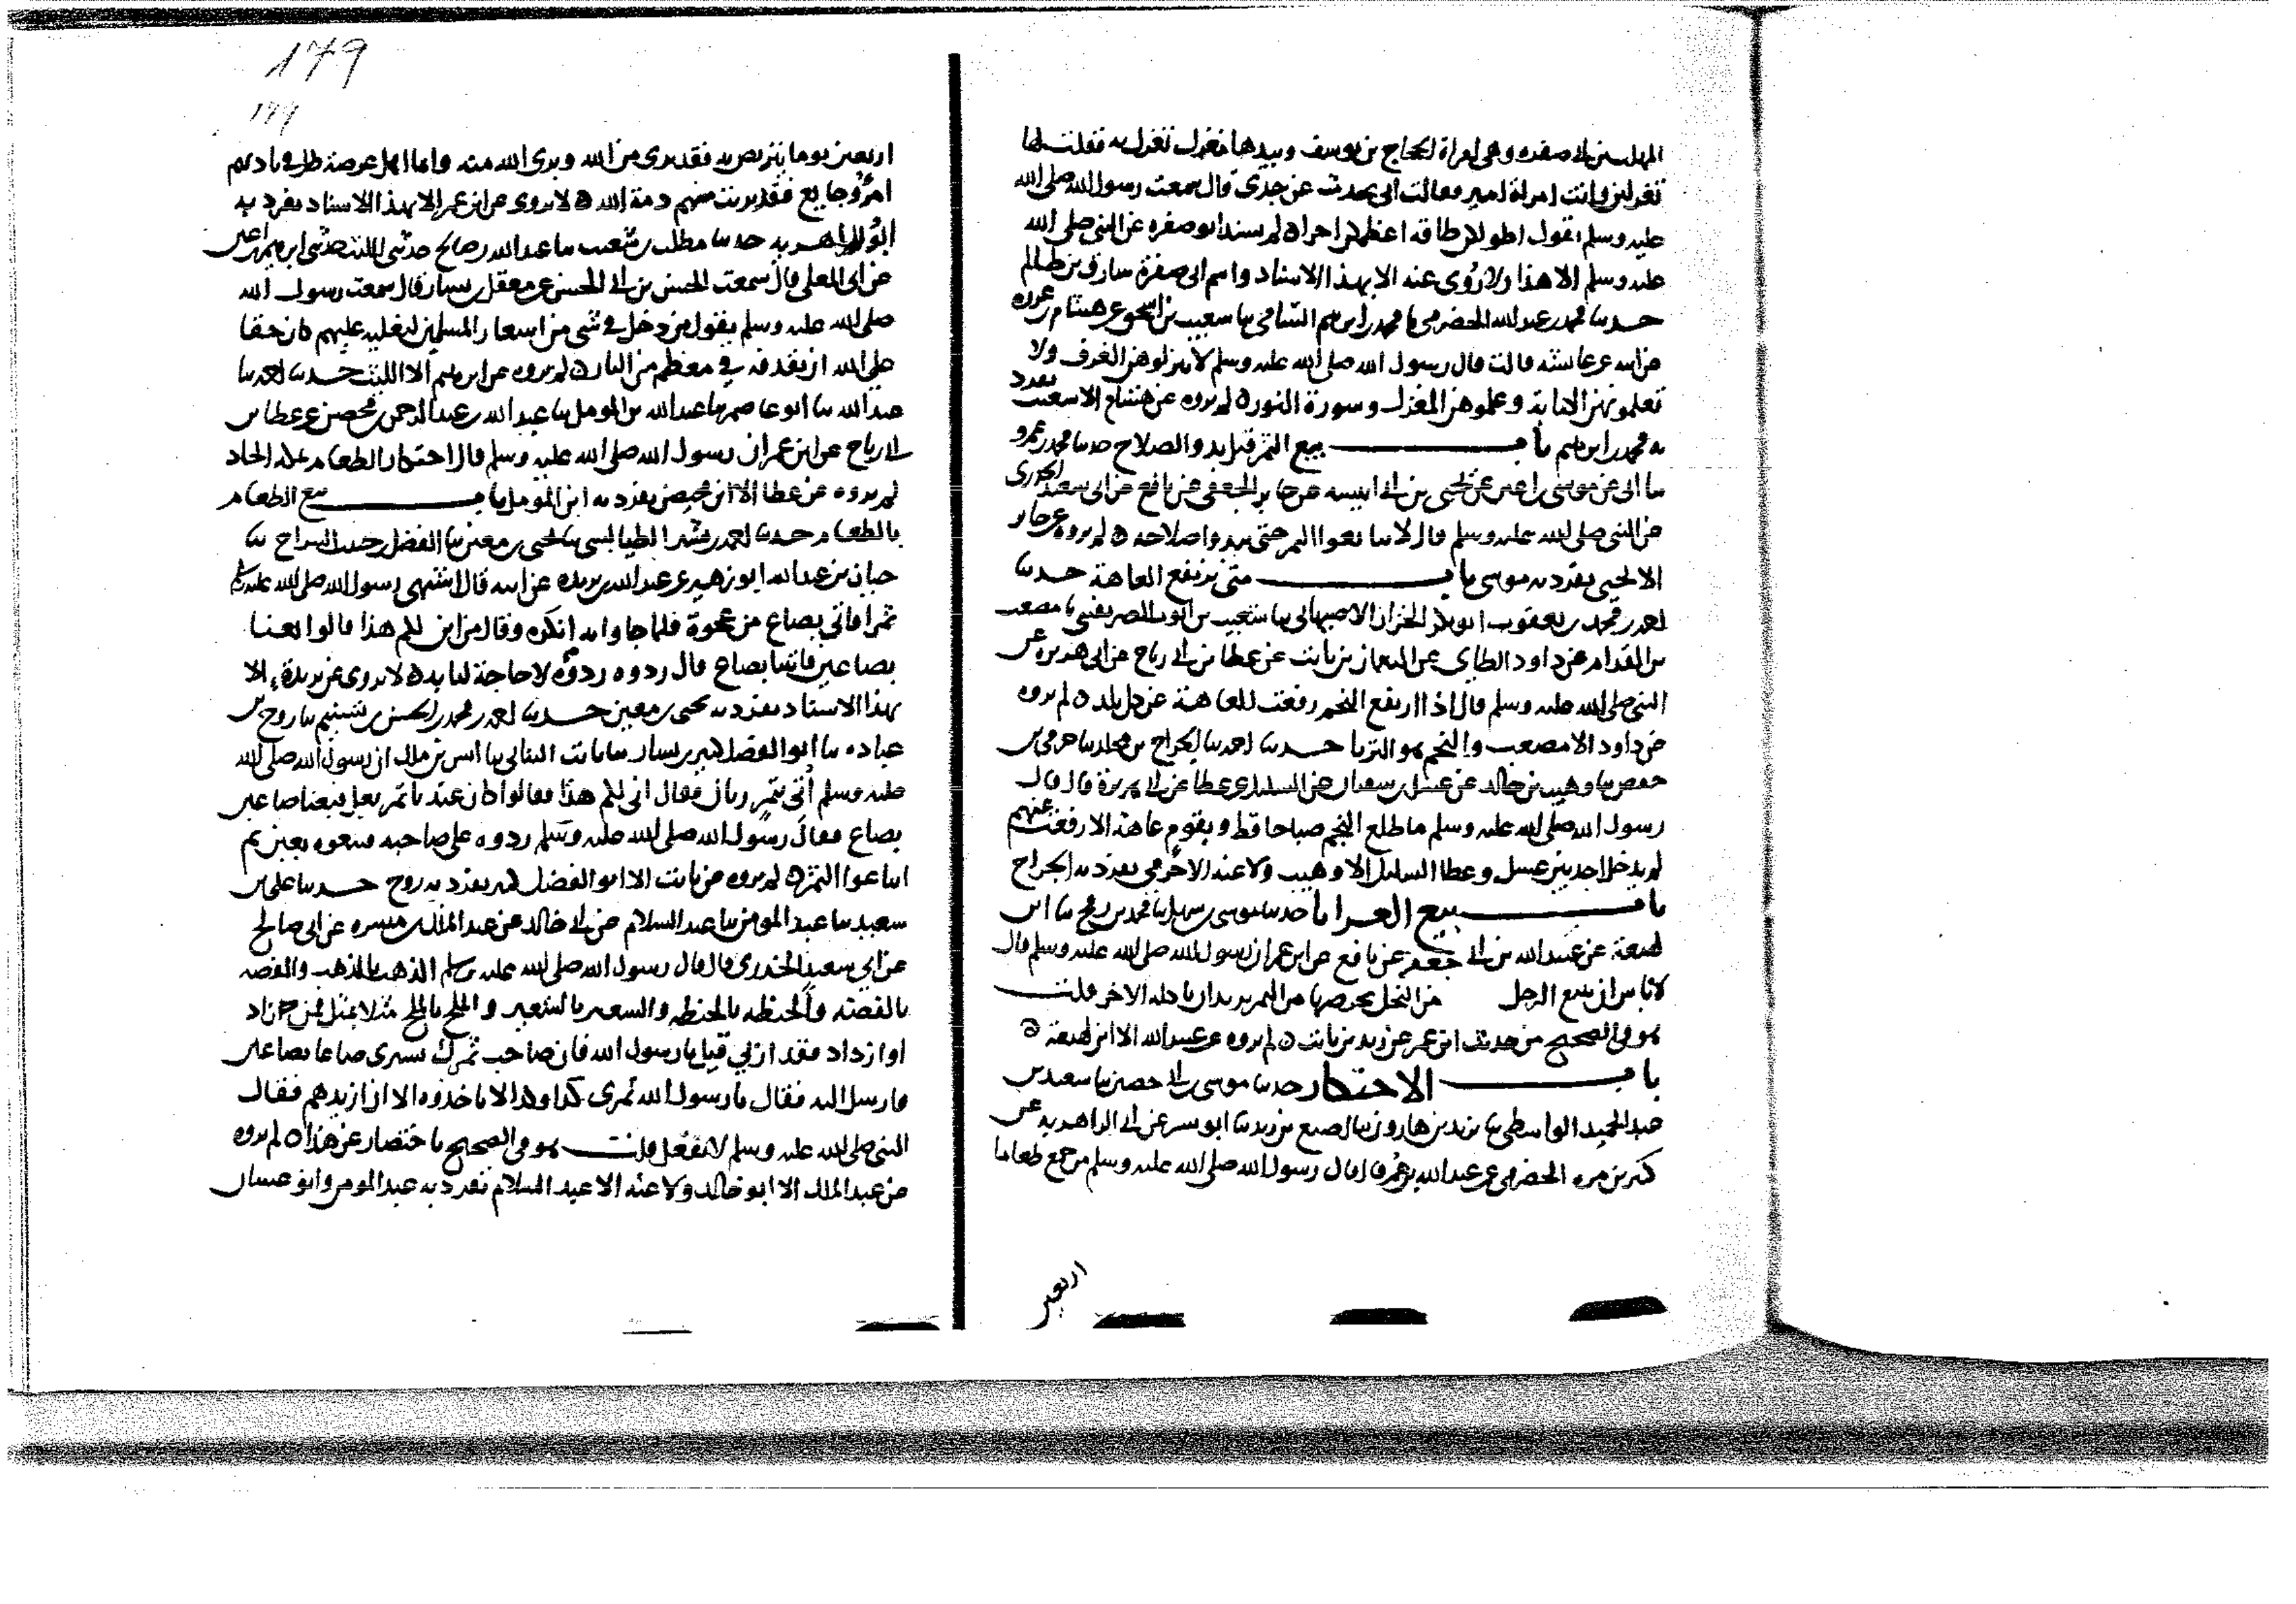 المهلب بن ابى صفره وهى امراة الحجاج بن يوسف وبيدها مغزل تغزل به فقلت لها
تغزلين وانت امراة امير فقالت ابى يحدث عن جدى قال سمعت رسول الله صلى الله
عليه وسلم يقول اطولكن طاقه اعظمكن اجرا ه لم يسند ابو صفره عن النبى صلى الله
عليه وسلم الا هذا ولا يروى عنه الا بهذا الاسناد واسم ابى صفرة سارق بن ظالم
حدثنا محمد بن عبد الله الحضرمى ثنا محمد بن ابرهيم الشامى ثنا شعيب بن اسحق عن هشام بن عروه
عن ابيه عن عائشه قالت قال رسول الله صلى الله عليه وسلم لا تنزلوهن الغرف ولا
تعلموهن الكتابة وعلموهن المغزل وسورة النور ه لم يروه عن هشام الا شعيب تفرد
به محمد بن ابرهيم باب بيع الثمر قبل بدو الصلاح حدثنا محمد بن عمرو
ثنا ابى عن موسى بن اعين عن يحيى بن ابى انيسه عن جابر الجعفى عن نافع عن ابى سعيد الخدرى
عن النبى صلى الله عليه وسلم قال لا تبايعوا الثمر حتى يبدوا صلاحه ه لم يروه عن جابر
الا يحيى تفرد به موسى باب متى ترتفع العاهة حدثنا
احمد بن محمد بن يعقوب ابو بكر الخزاز الاصبهانى ثنا شعيب بن ايوب الصريفينى ثنا مصعب
بن المقدام عن داود الطاى عن النعمان بن ثابت عن عطا بن ابى رباح عن ابى هريرة عن
النبى صلى الله عليه وسلم قال اذا ارتفع النجم رفعت العاهة عن كل بلد ه لم يروه
عن داود الا مصعب والنجم هو الثريا حدثنا احمد ثنا الجراح بن مخلد ثنا حرمى بن
حفص ثنا وهيب بن خالد عن عسل بن سفيان عن السليل عن عطا عن ابى هريرة قال قال
رسول الله صلى الله عليه وسلم ما طلع النجم صباحا قط وبقوم عاهة الا رفعت عنهم
لم يدخل احد بين عسل وعطا السليل الا وهيب ولا عنه الا حرمى تفرد به الجراح
باب بيع العرايا حدثنا موسى بن سهل ثنا محمد بن رمح ثنا ابن
لهيعة عن عبيد الله بن ابى جعفر عن نافع عن ابن عمر ان رسول الله صلى الله عليه وسلم قال
لا باس ان يبيع الرجل من النخل يخرصها من التمر يريد ان ياكله الاخر قلت
هو فى الصحيح من حديث ابن عمر عن زيد بن ثابت ه لم يروه عن عبيد الله الا ابن لهيعة ه
باب الاحتكار حدثنا موسى بن ابى حصين ثنا سعيد بن
عبد الحميد الواسطى ثنا يزيد بن هارون ثنا اصبغ بن زيد ثنا ابو بشر عن ابى الزاهريه عن
كثير بن مره الحضرمى عن عبد الله بن عمر قال قال رسول الله صلى الله عليه وسلم من جمع طعاما
اربعين
179
اربعين يوما يتربص به فقد برى من الله وبرى الله منه وايما اهل عرصة ظل فى ناديهم
امرؤ جايع فقد برئت منهم ذمة الله ه لا يروى عن ابن عمر الا بهذا الاسناد تفرد به
ابو الزاهريه حدثنا مطلب بن شعيب ثنا عبد الله بن صالح حدثنى الليث حدثنى ابرهيم بن اعين
عن ابى المعلى قال سمعت الحسن بن ابى الحسن عن معقل بن يسار قال سمعت رسول الله
صلى الله عليه وسلم يقول من دخل فى شى من اسعار المسلمين ليغليه عليهم كان حقا
على الله ان يقذفه فى معظم من النار ه لم يروه عن ابرهيم الا الليث حدثنا احمد ثنا
عبد الله ثنا ابو عاصم ثنا عبد الله بن المومل ثنا عبد الله بن عبد الرحمن بن محيصن عن عطا بن
ابى رباح عن ابن عمر ان رسول الله صلى الله عليه وسلم قال احتكار الطعام بمكه الحاد
لم يروه عن عطا الا ابن محيصن تفرد به ابن المومل باب بيع الطعام
بالطعام حدثنا احمد بن بشر الطيالسى ثنا يحيى بن معين ثنا الفضل بن حبيب السراج ثنا
حبان بن عبد الله ابو زهير عن عبد الله بن بريده عن ابيه قال اشتهى رسول الله صلى الله عليه وسلم
تمرا فاتى بصاع من عجوة فلما جاوا به انكره وقال من اين لكم هذا قالوا بعنا
بصاعين فاتينا بصاع قال ردوه ردوه لا حاجة لنا به ه لا يروى عن بريدة الا
بهذا الاسناد تفرد به يحيى بن معين حدثنا احمد بن محمد بن الحسن بن شتيم ثنا روح بن
عباده ثنا ابو الفضل كثير بن يسار ثنا ثابت البنانى ثنا انس بن مالك ان رسول الله صلى الله
عليه وسلم اتى بتمر ريان فقال انى لكم هذا فقالوا كان عندنا تمر بعل فبعنا صاعين
بصاع فقال رسول الله صلى الله عليه وسلم ردوه على صاحبه فبيعوه بعين ثم
ابتاعوا التمر ه لم يروه عن ثابت الا ابو الفضل كثير تفرد به روح حدثنا على بن
سعيد ثنا عبد المومن ثنا عبد السلام عن ابى خالد عن عبد الملك بن ميسره عن ابى صالح
عن ابى سعيد الخدرى قال قال رسول الله صلى الله عليه وسلم الذهب بالذهب والفضه
بالفضة والحنطه بالحنطه والشعير بالشعير والملح بالملح مثلا بمثل فمن زاد
او ازداد فقد اربى قيل يا رسول الله فان صاحب تمرك يشترى صاعا بصاعين
فارسل اليه فقال يا رسول الله تمرى كذا وكذا لا ياخذوه الا ان ازيدهم فقال
النبى صلى الله عليه وسلم لا تفعل قلت هو فى الصحيح باختصار عن هذا ه لم يروه
عن عبد الملك الا ابو خالد ولا عنه الا عبد السلام تفرد به عبد المومن وابو غسان